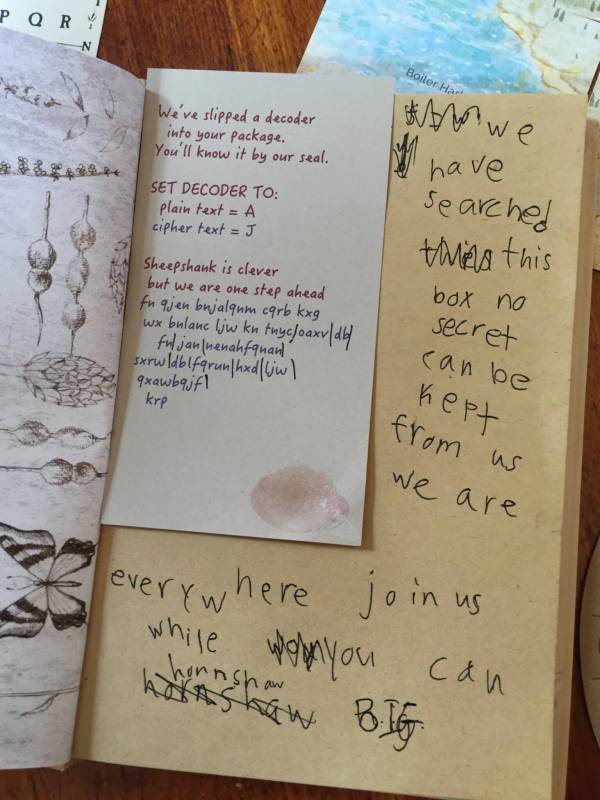 P Q R
N
Boiler Har
We've slipped a decoder
into your package.
You'll know it by our seal.
SET DECODER TO:
plain text = A
cipher text = J
Sheepshank is clever
but we are one step ahead
fn qjen bnjalqnm cqrb kxg
wx bnlanc ljw kn tnyc|oaxv|db|
fn|jan|nenahfqnan|
sxrw|db|fqrun|hxd|ljw|
qxawbqjf|
krp
we
have
searched
this
box no
secret
can be
kept
from us
we are
everywhere join us
while you can
hornshaw
hornshaw BIG